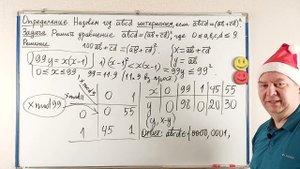 Определение. Назовем чл abcd интересным, если abcd=(ab+cd)².
Задача Решить уравнение abcd=(ab+cd)², где 0≤a,b,c,d≤9
Решение
100ab+cd=(ab+cd)²
x=ab+cd
y=ab
99y=x(x-1)
1) (x-1)²<x(x-1)=99y≤99²
0≤x≤99
99=11·9
x mod 99
0 1
0 0 55
1 45 1
x 0 99 1 45 55
y 0 98 0 20 30
(y,x-y)
Ответ: abcd∈{0000,0001,